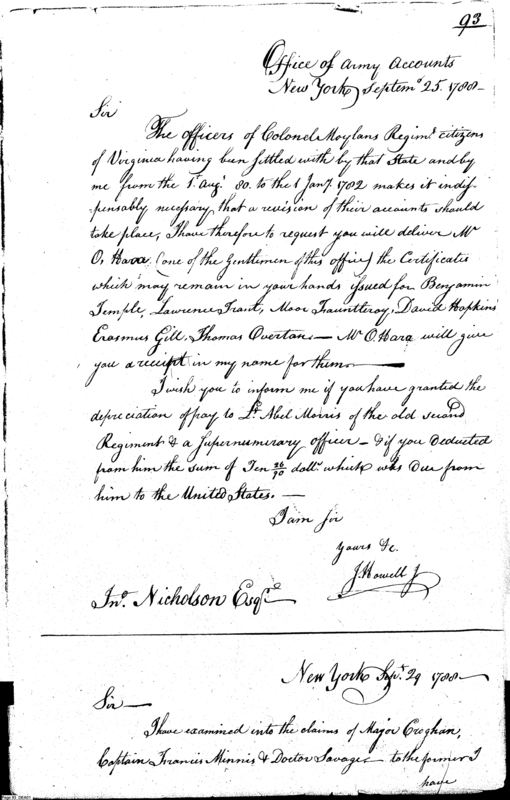 93
Office of Army Accounts
New York Septemr 25. 1788-
Sir
The officers of Colonel Moylans Regimt citizens
of Virginea having been settled with by that State and by
me from the 1st Augt 80. to the 1 Jany. 1782 makes it indis-
pensably necessary that a revision of their accounts should
take place, I have therefore to request you will deliver Mr
O, Hara (one of the Gentlemen of this office) the Certificates
which may remain in your hands issued for Benjamin
Temple, Lawrence Trant, Moor Fauntleroy, David Hopkins
Erasmus Gill. Thomas Overton.- Mr O. Hara will give
you a receipt in my name for them-
I wish you to inform me if you have granted the
depreciation of pay to Lt. Abel Morris of the old second
Regiment & a Supernumerary officer - & if you deducted
from him the sum of Ten 26/90 dolls. which was due from
him to the United States.-
I am Sir
Yours &c.
J. Howell J
Jno. Nicholson Esqre
New York Sept. 29 1788-
Sir-
I have examined into the claims of Major Croghan,
Captain Francis Minnis & Doctor Savage - to the former I
have